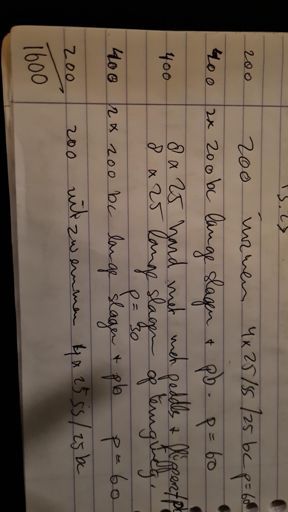 13.25
200 200 inzwemmen 4x25/ss/25 bc p=60
400 2x 200 bc lange slagen + pb. p=60
400 8 x 25 hard met peddls + flippers/pb
8 x 25 lange slagen op
p=30
400 2x 200 bc lange slagen + pb p=60
200 200 uitzwemmen 4x25 ss/25 bc
1600